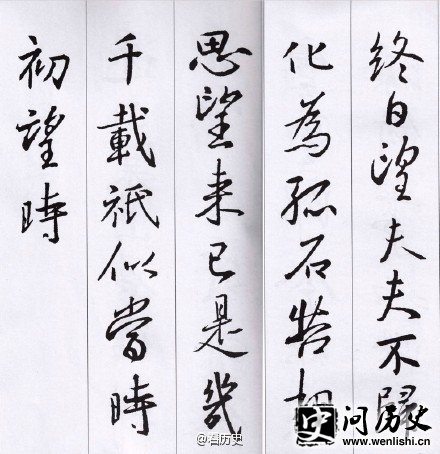 終日望夫夫不歸
化為孤石苦相
思望来已是幾
千載祇似當時
初望時
@看历史
史 问历史
www.wenlishi.cn